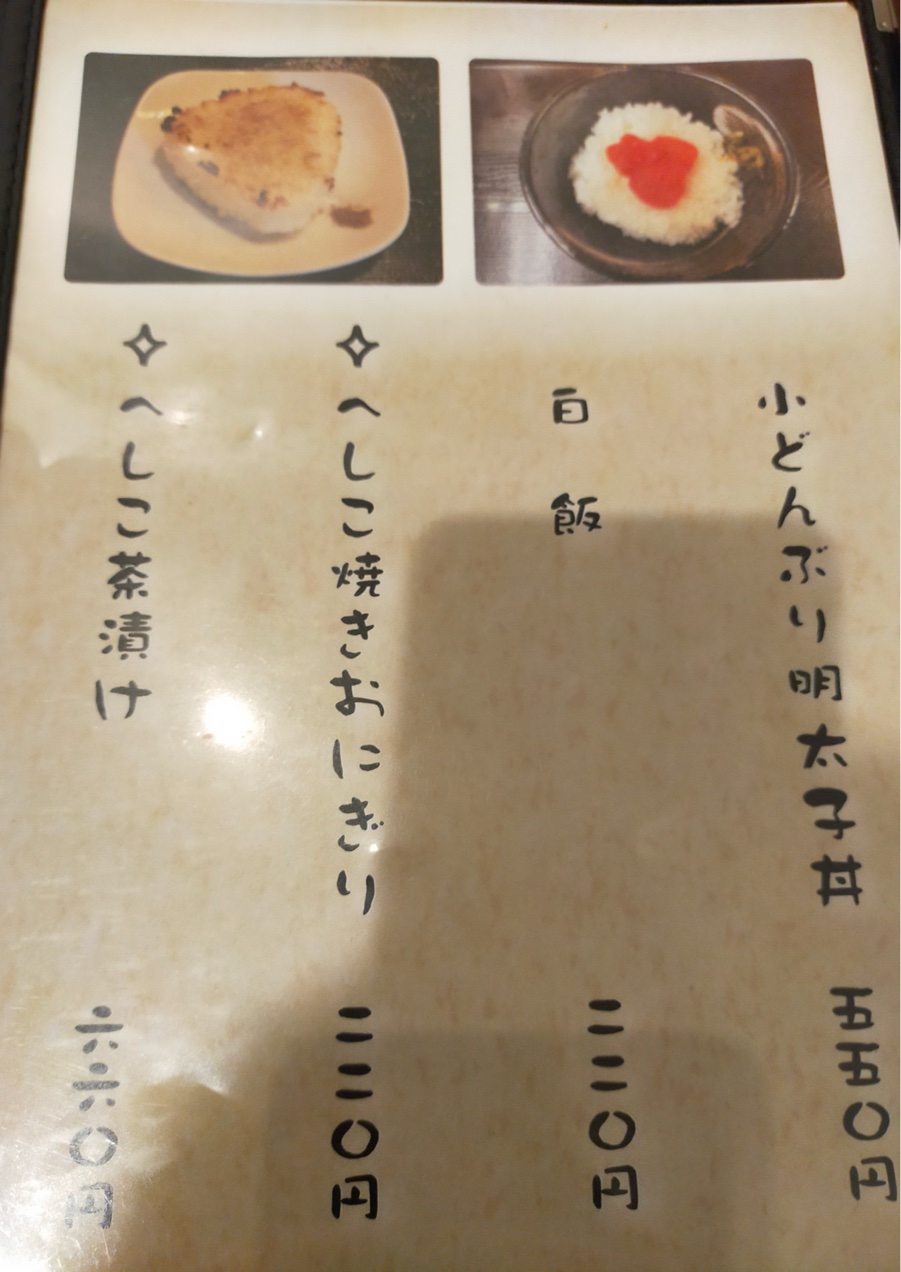 小どんぶり明太子丼 五五〇円
白飯 二二〇円
✧へしこ焼きおにぎり 二二〇円
✧へしこ茶漬け 六六〇円